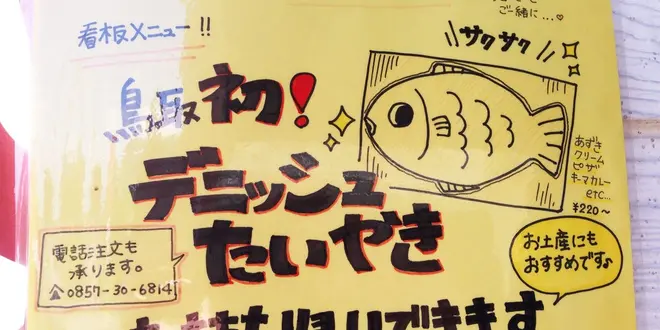 ご一緒に…♡
看板メニュー!!
サクサク
鳥取初!
デニッシュ
たいやき
あずき
クリーム
ピザ
キーマカレー
etc...
¥220~
電話注文も
承ります。
☎0857-30-6814
お土産にも
おすすめです♪